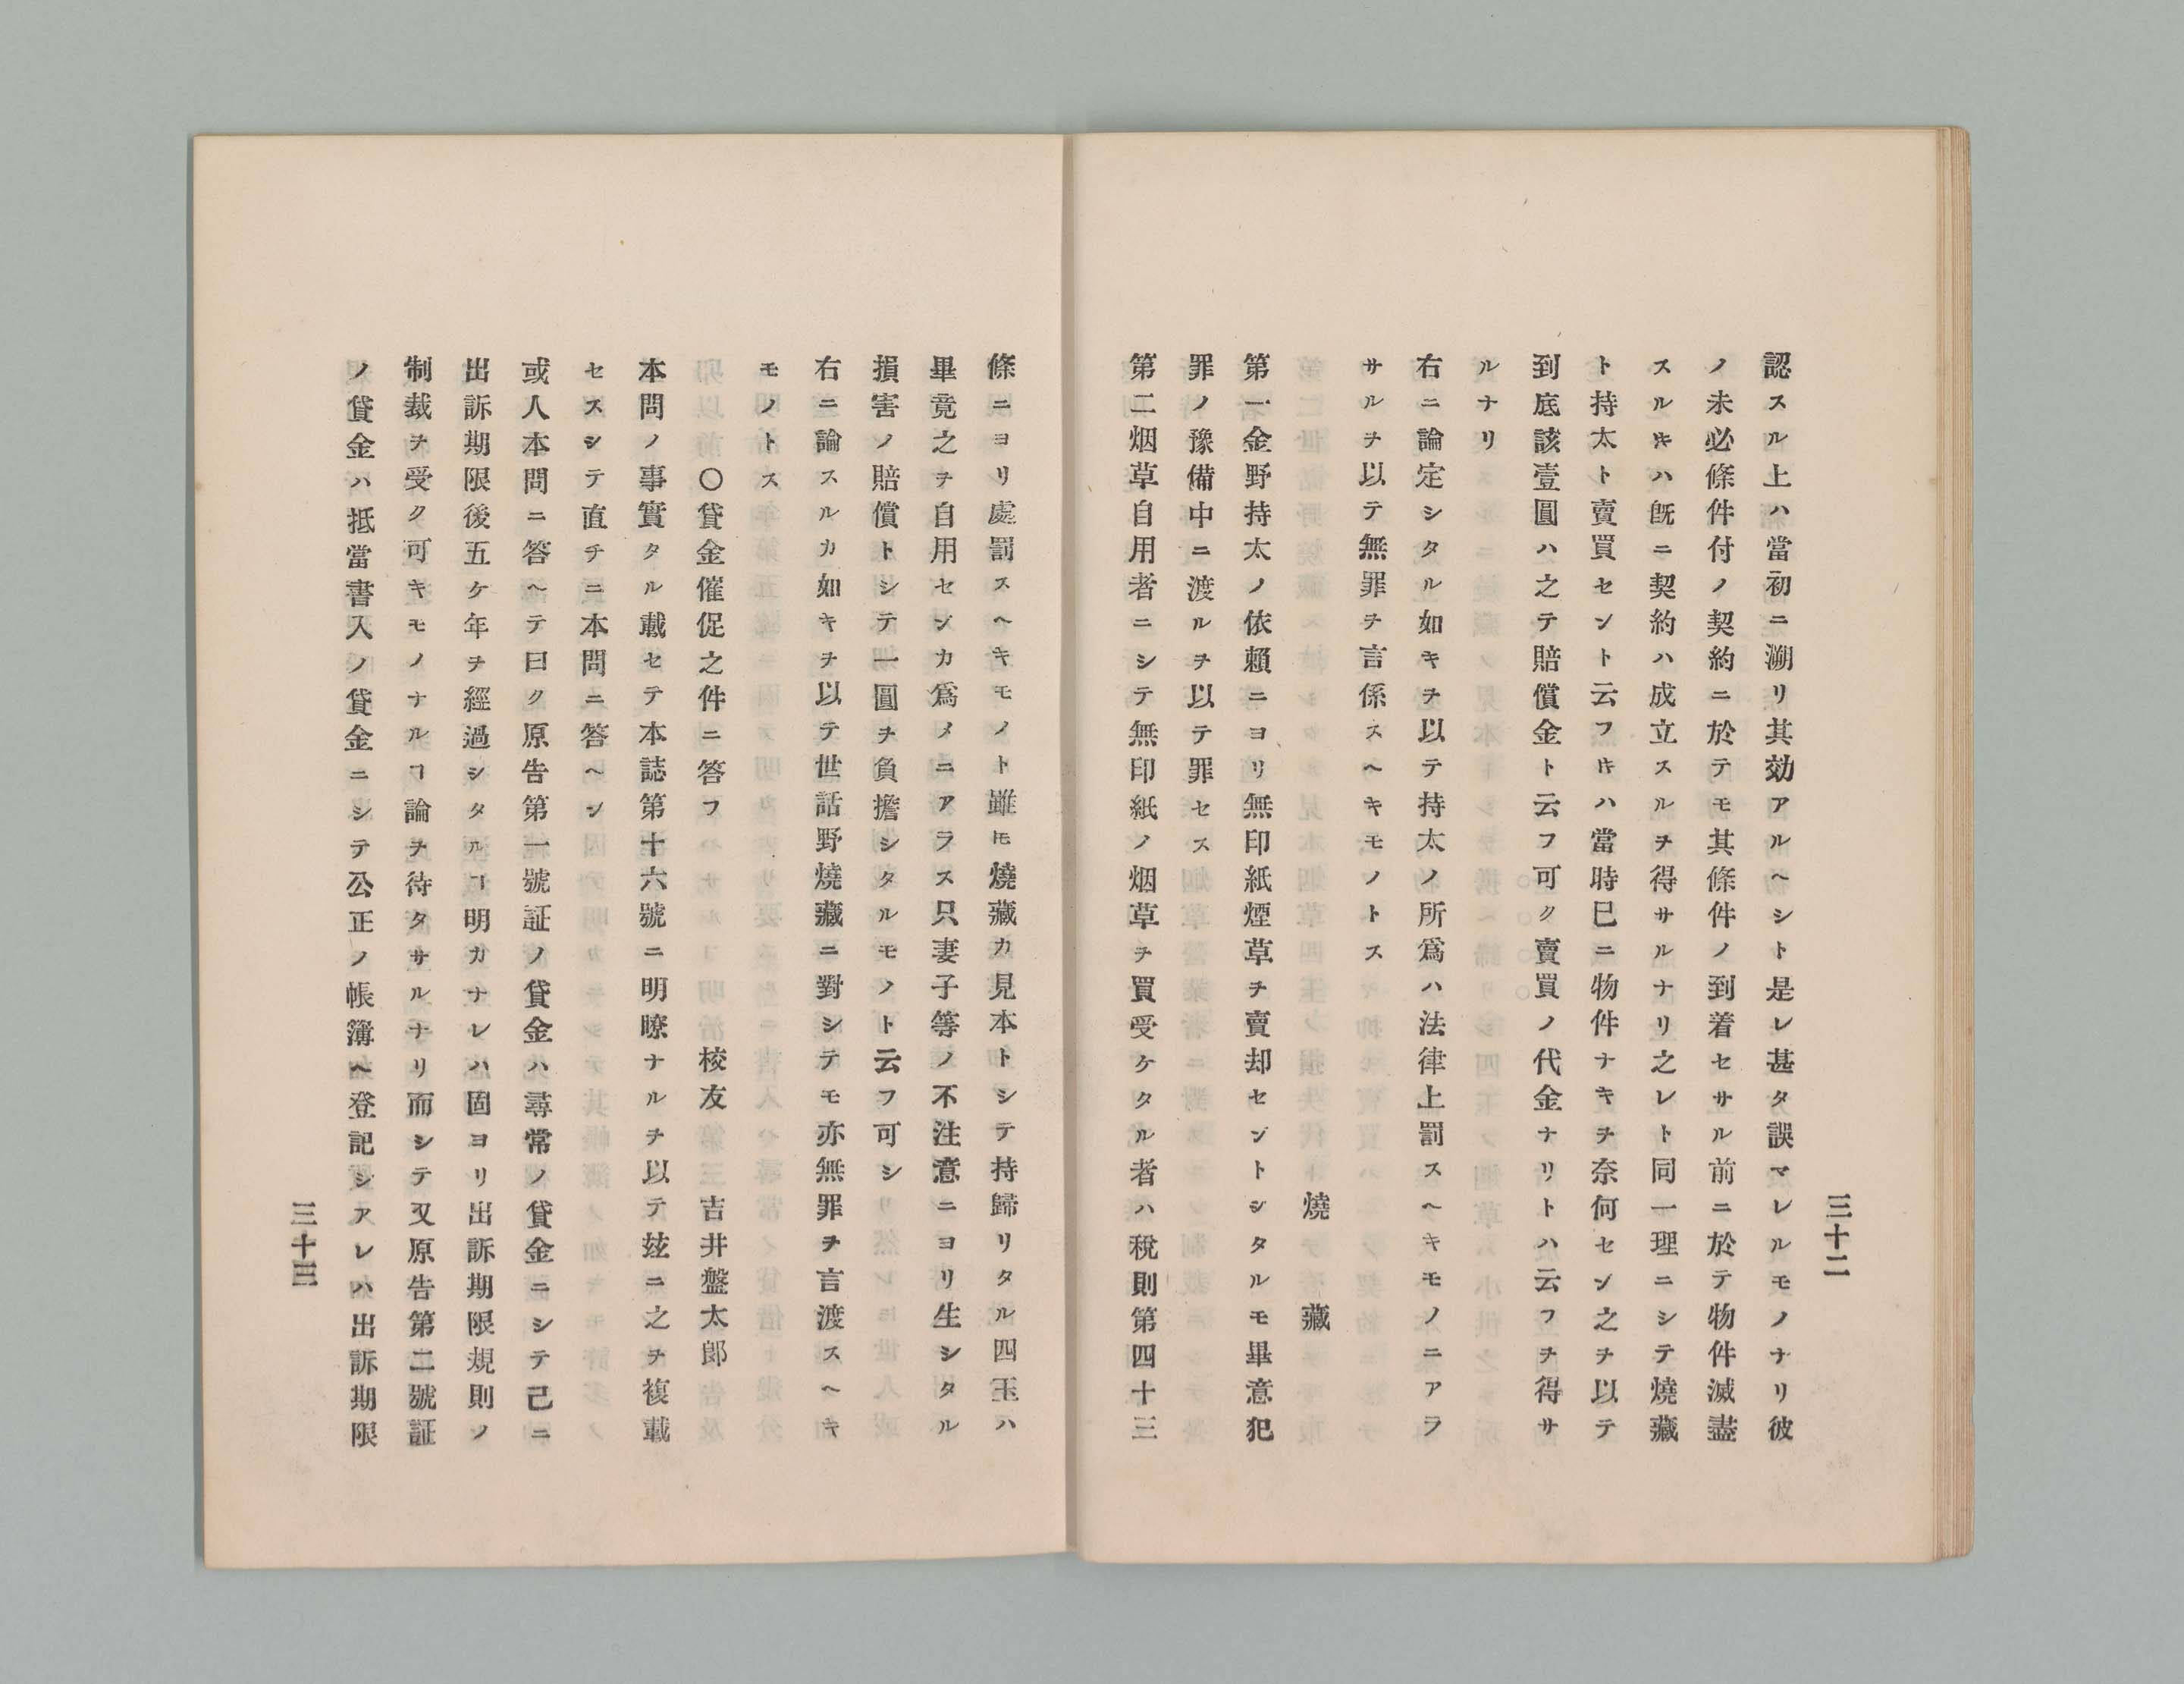 三十二
認スル上ハ當初ニ溯リ其効アルヘシト是レ甚タ誤マレルモノナリ彼
ノ未必條件付ノ契約ニ於テモ其條件ノ到着セサル前ニ於テ物件滅盡
スルキハ既ニ契約ハ成立スルヲ得サルナリ之レト同一理ニシテ燒藏
ト持太ト賣買セント云フキハ當時已ニ物件ナキヲ奈何セン之ヲ以テ
到底該壹圓ハ之テ賠償金ト云フ可ク賣買ノ代金ナリトハ云フヲ得サ
ルナリ
右ニ論定シタル如キヲ以テ持太ノ所爲ハ法律上罰スヘキモノニアラ
サルヲ以テ無罪ヲ言係スヘキモノトス
燒藏
第一金野持太ノ依賴ニヨリ無印紙煙草ヲ賣却セントシタルモ畢意犯
罪ノ豫備中ニ渡ルヲ以テ罪セス
第二烟草自用者ニシテ無印紙ノ烟草ヲ買受ケタル者ハ税則第四十三
條ニヨリ處罰スヘキモノト雖𪜈燒藏カ見本トシテ持歸リタル四玉ハ
畢竟之ヲ自用センカ爲メニアラス只妻子等ノ不注意ニヨリ生シタル
損害ノ賠償トシテ一圓ヲ負擔シタルモノト云フ可シ
右ニ論スルカ如キヲ以テ世話野燒藏ニ對シテモ亦無罪ヲ言渡スヘキ
モノトス
〇貸金催促之件ニ答フ 校友 吉井盤太郎
本問ノ事實タル載セテ本誌第十六號ニ明瞭ナルヲ以テ玆ニ之ヲ複載
セスシテ直チニ本問ニ答ヘン
或人本問ニ答ヘテ曰ク原告第一號証ノ貸金ハ尋常ノ貸金ニシテ己ニ
出訴期限後五ケ年ヲ經過シタルヿ明カナレハ固ヨリ出訴期限規則ノ
制裁ヲ受ク可キモノナルヿ論ヲ待タサルナリ而シテ又原告第二號証
ノ貸金ハ抵當書入ノ貸金ニシテ公正ノ帳簿ヘ登記シアレハ出訴期限
三十三